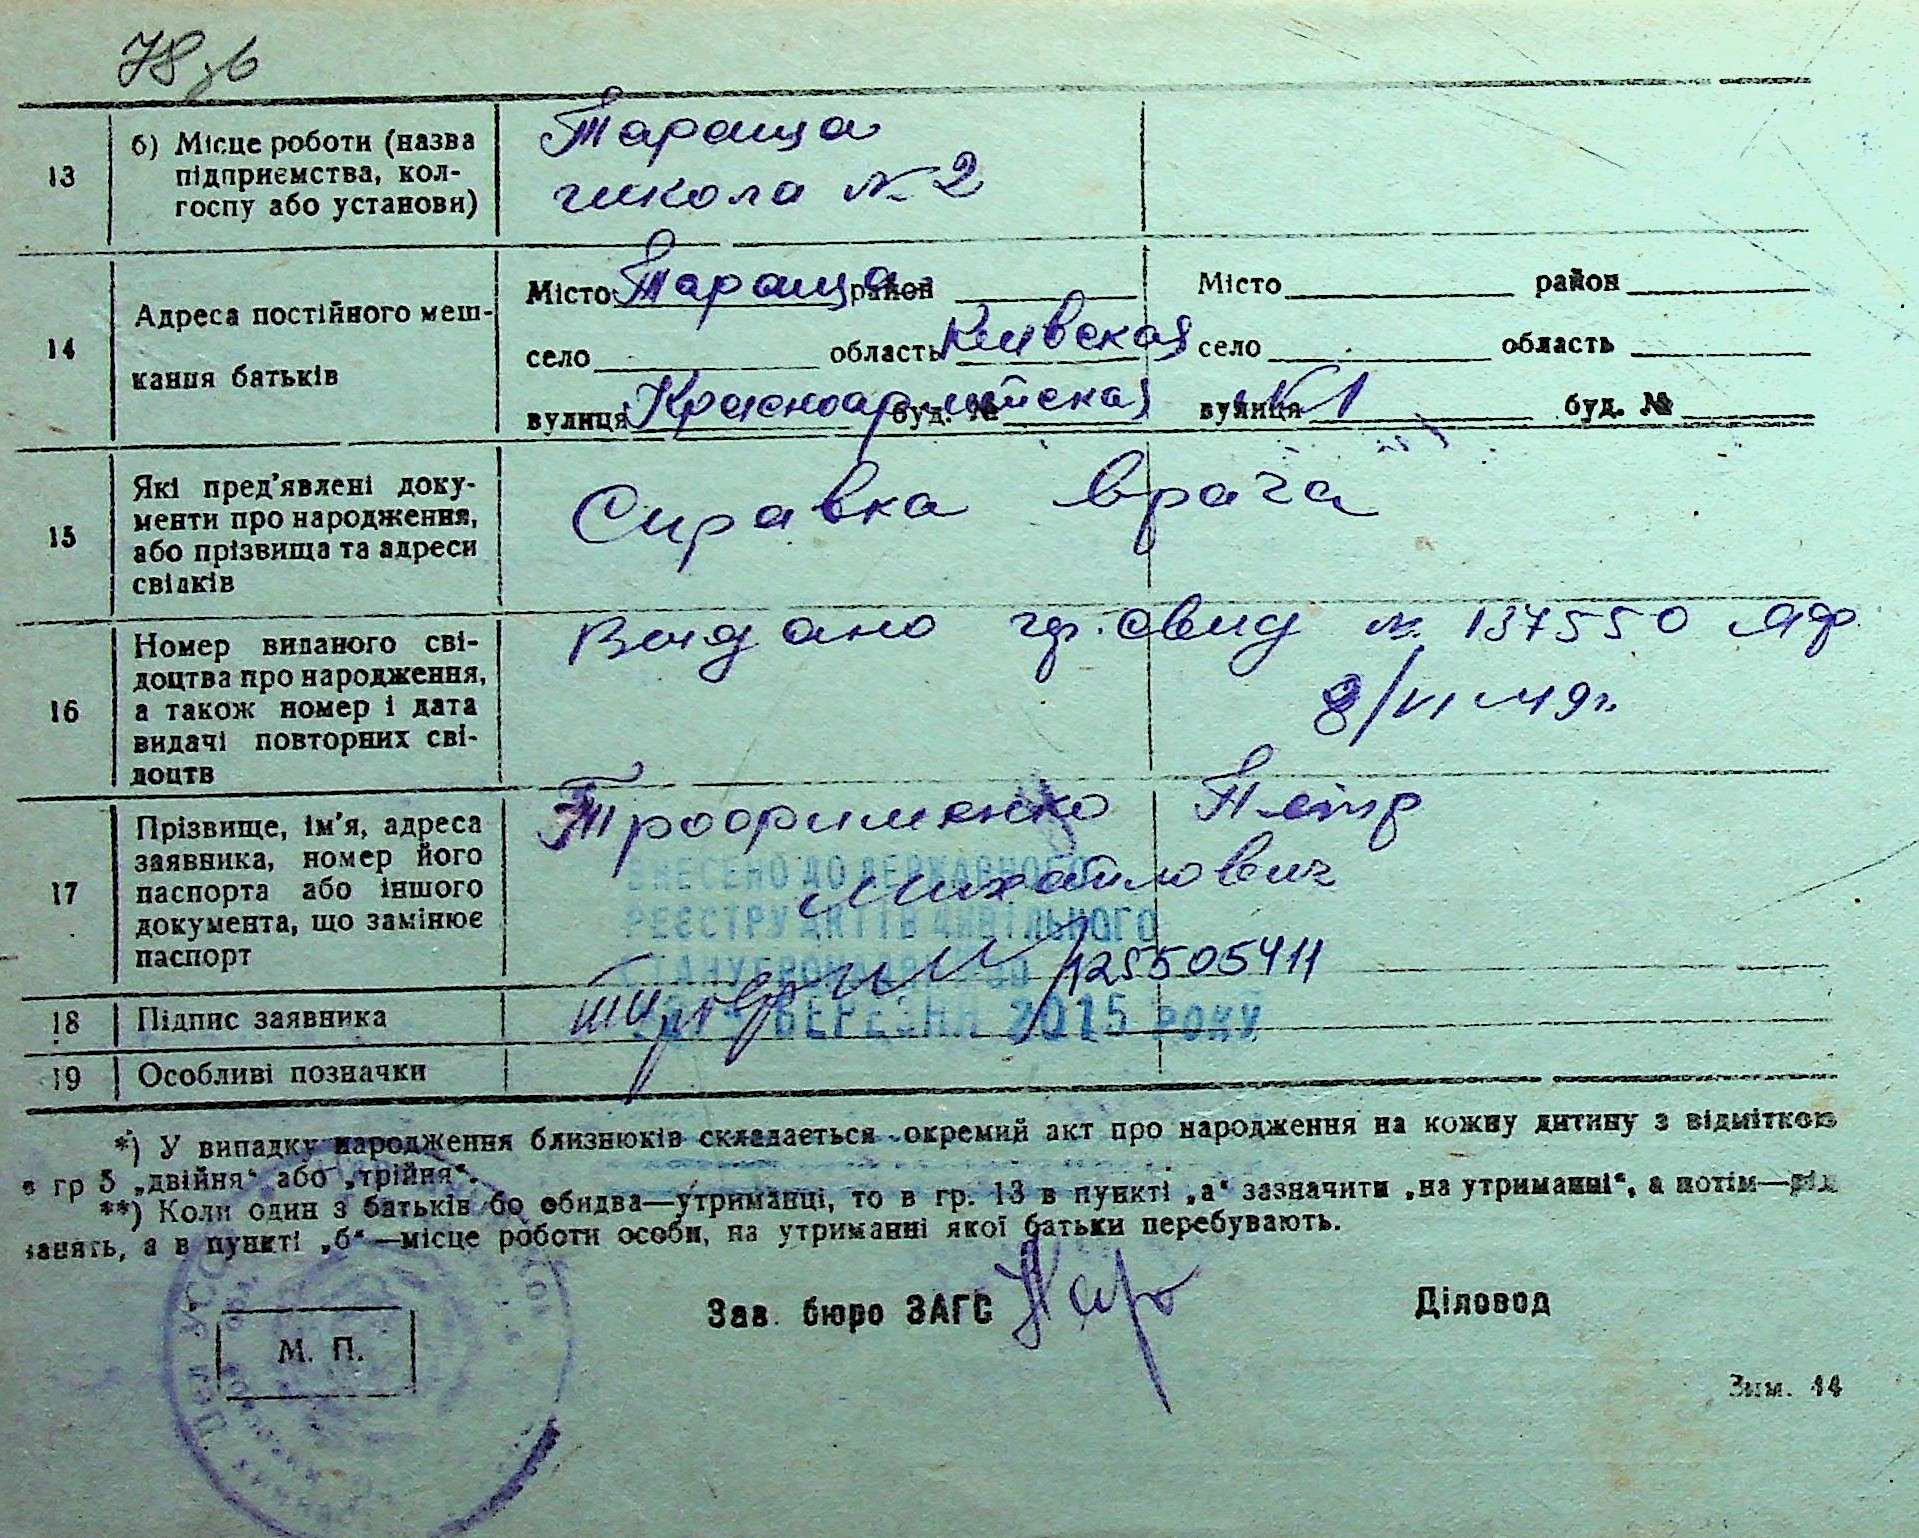 78 зв
13
б) Місце роботи (назва
підприємства, кол-
госпу або установи)
Тараща
школа № 2
14
Адреса постійного меш-
кання батьків
Місто Тараща район
село область Киевская
вулиця Красноармейская буд. №
Місто район
село область
вулиця №1 буд. №
15
Які пред'явлені доку-
менти про народження,
або прізвища та адреси
свідків
Справка врача
16
Номер виданого сві-
доцтва про народження,
а також номер і дата
видачі повторних сві-
доцтв
Выдано свид № 137550
8/VI 49 г.
17
Прізвище, ім'я, адреса
заявника, номер його
паспорта або іншого
документа, що замінює
паспорт
Трофименко Петр
Михайлович
125505411
ВНЕСЕНО ДО ДЕРЖАВНОГО
РЕЄСТРУ АКТІВ ЦИВІЛЬНОГО
СТАНУ ГРОМАДЯН
БЕРЕЗНЯ 2015 РОКУ
18
Підпис заявника
19
Особливі позначки
*) У випадку народження близнюків складається окремий акт про народження на кожну дитину з відміткою
в гр 5 „двійня“ або „трійня“.
**) Коли один з батьків бо обидва—утриманці, то в гр. 13 в пункті „а“ зазначити „на утриманні“, а потім—рід
занять, а в пункті „б“—місце роботи особи, на утриманні якої батьки перебувають.
Зав. бюро ЗАГС
Діловод
М. П.
Зам. 44